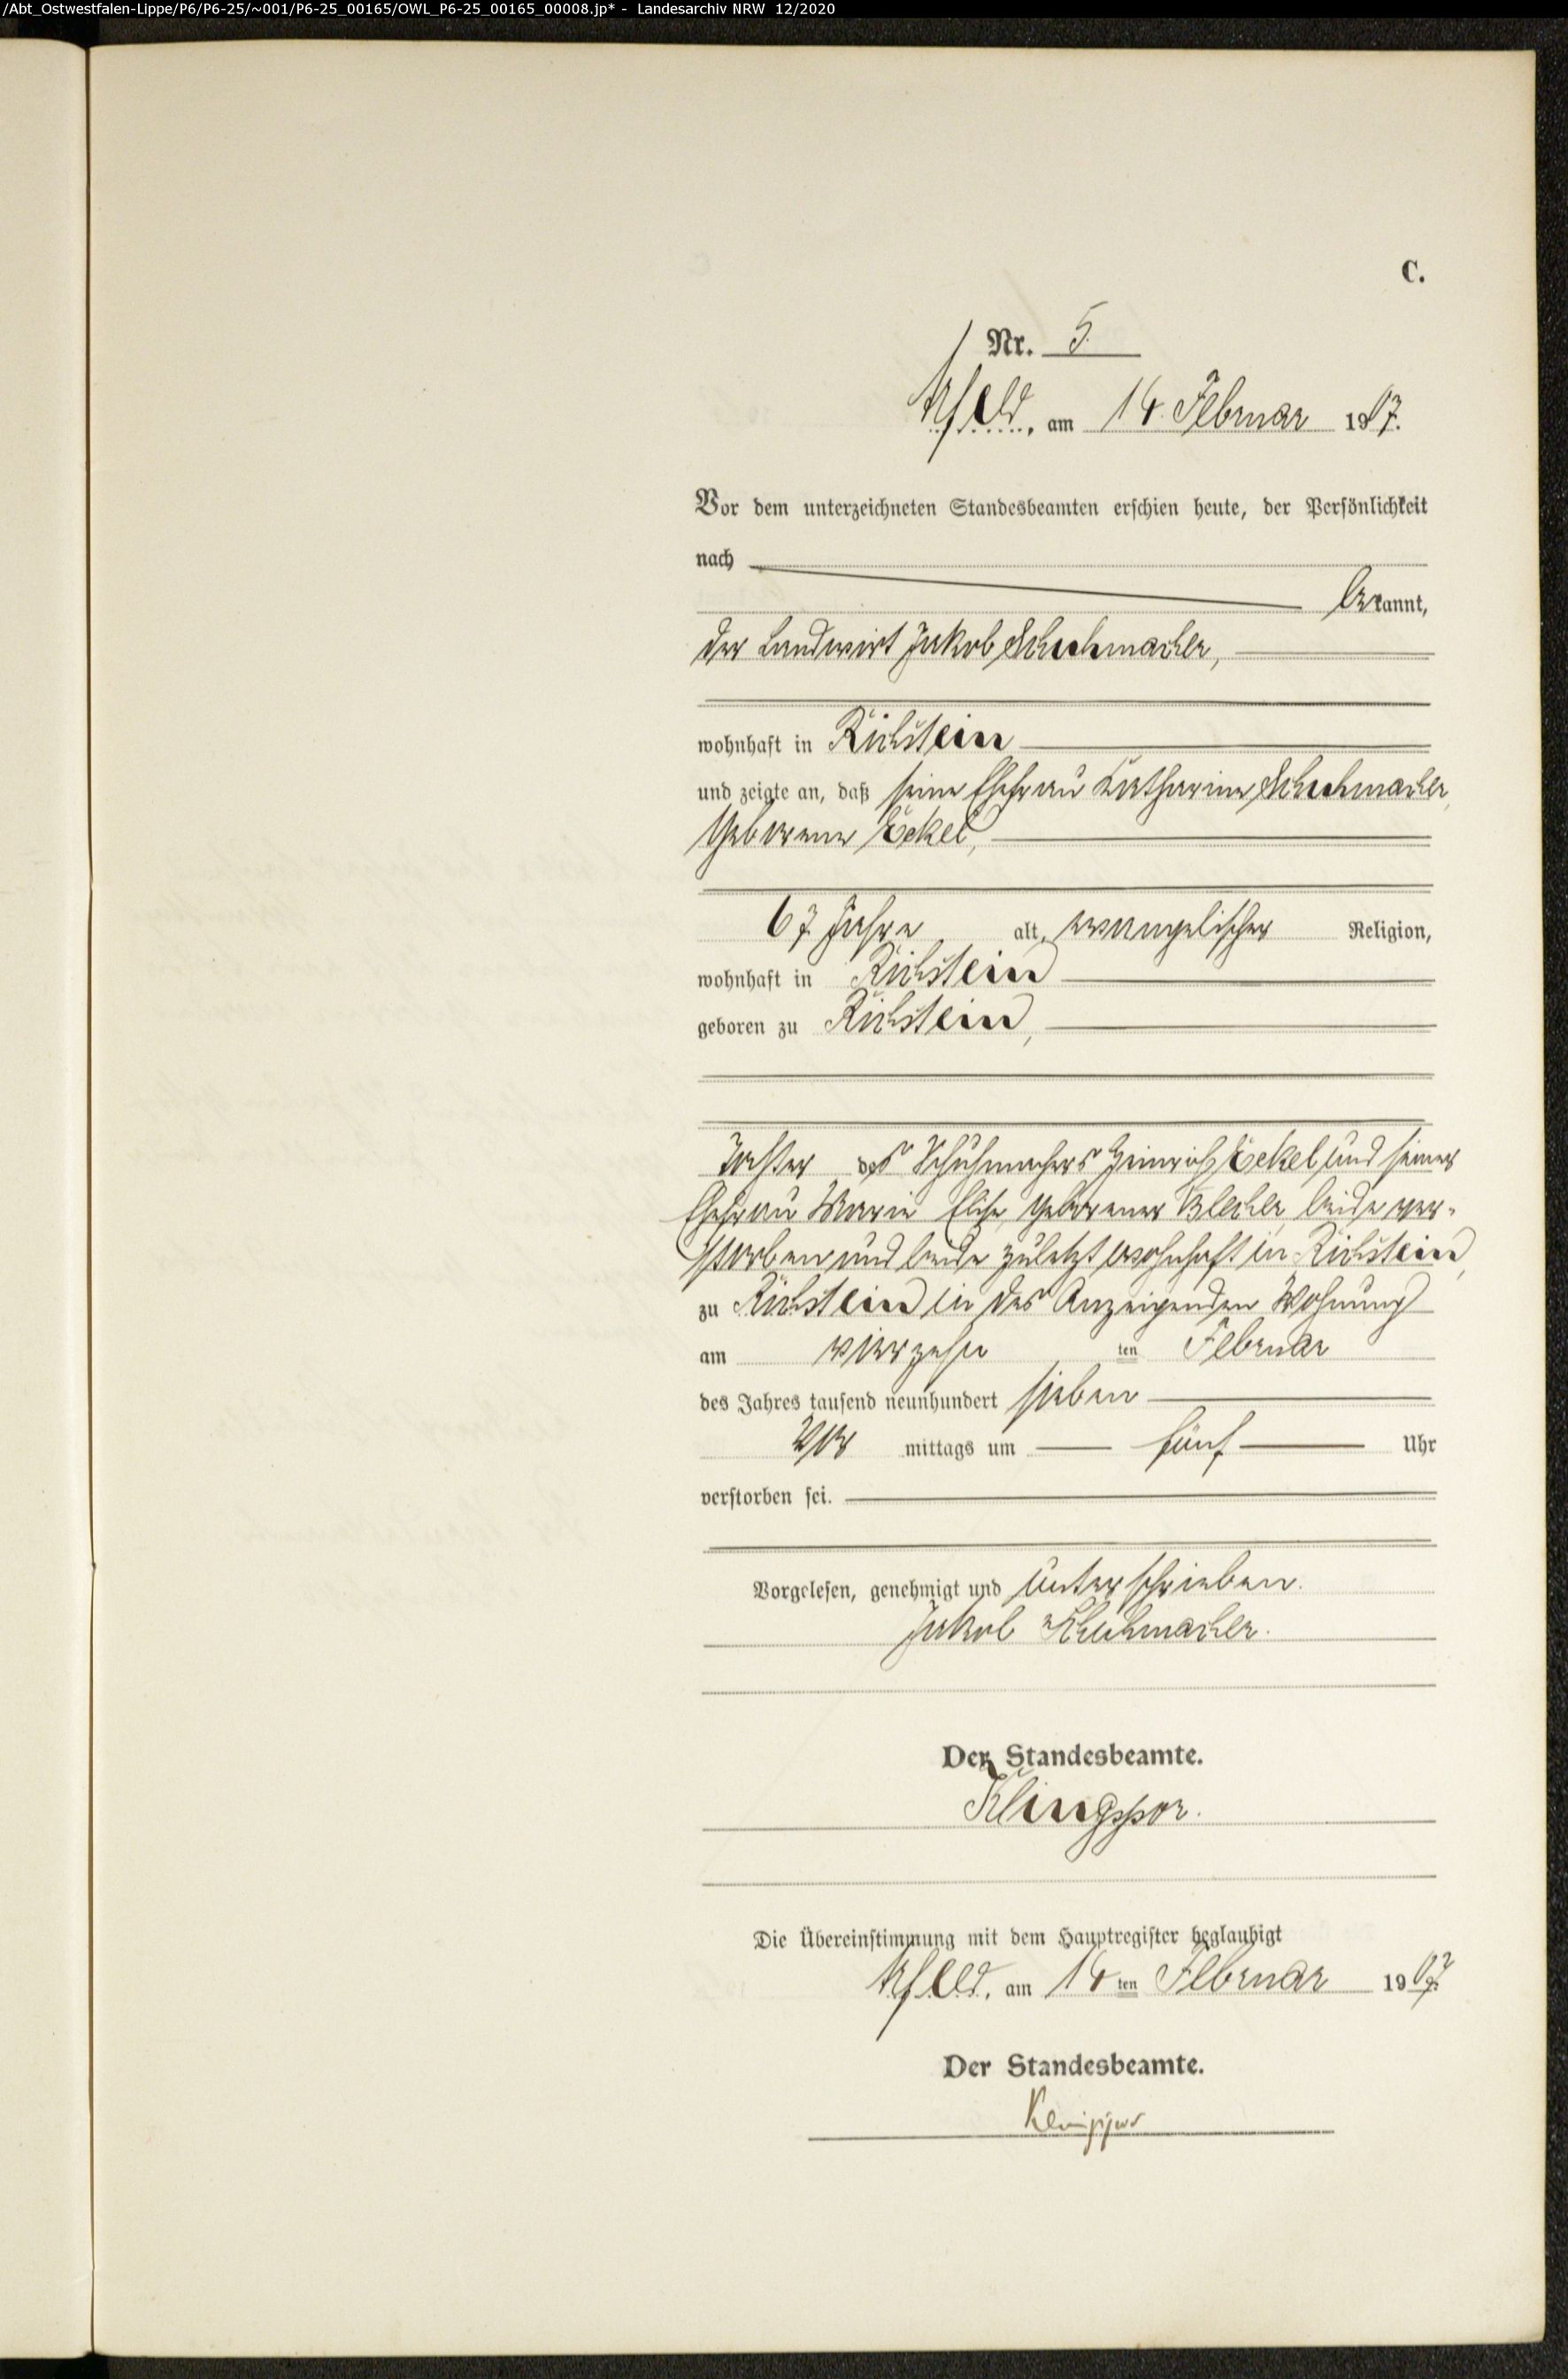 /Abt_Ostwestfalen-Lippe/P6/P6-25/~001/P6-25_00165/OWL_P6-25_00165_00008.jp* - Landesarchiv NRW 12/2020
C.
Nr. 5.
Arfeld, am 14. Februar 1907.
Vor dem unterzeichneten Standesbeamten erschien heute, der Persönlichkeit
nach
bekannt,
der Landwirt Jakob Schuhmacher,
wohnhaft in Richstein
und zeigte an, daß seine Ehefrau Katharine Schuhmacher,
geborene Eckel,
67 Jahre alt, evangelischer Religion,
wohnhaft in Richstein
geboren zu Richstein,
Tochter des Schuhmachers Heinrich Eckel und seiner
Ehefrau Marie Elise geborener Blecher, beide ver-
storben und beide zuletzt wohnhaft in Richstein,
zu Richstein in des Anzeigenden Wohnung
am vierzehn ten Februar
des Jahres tausend neunhundert sieben
Vor mittags um fünf Uhr
verstorben sei.
Vorgelesen, genehmigt und unterschrieben.
Jakob Schuhmacher.
Der Standesbeamte.
Klingspor.
Die Übereinstimmung mit dem Hauptregister beglaubigt
Arfeld, am 14 ten Februar 1907.
Der Standesbeamte.
Klingspor